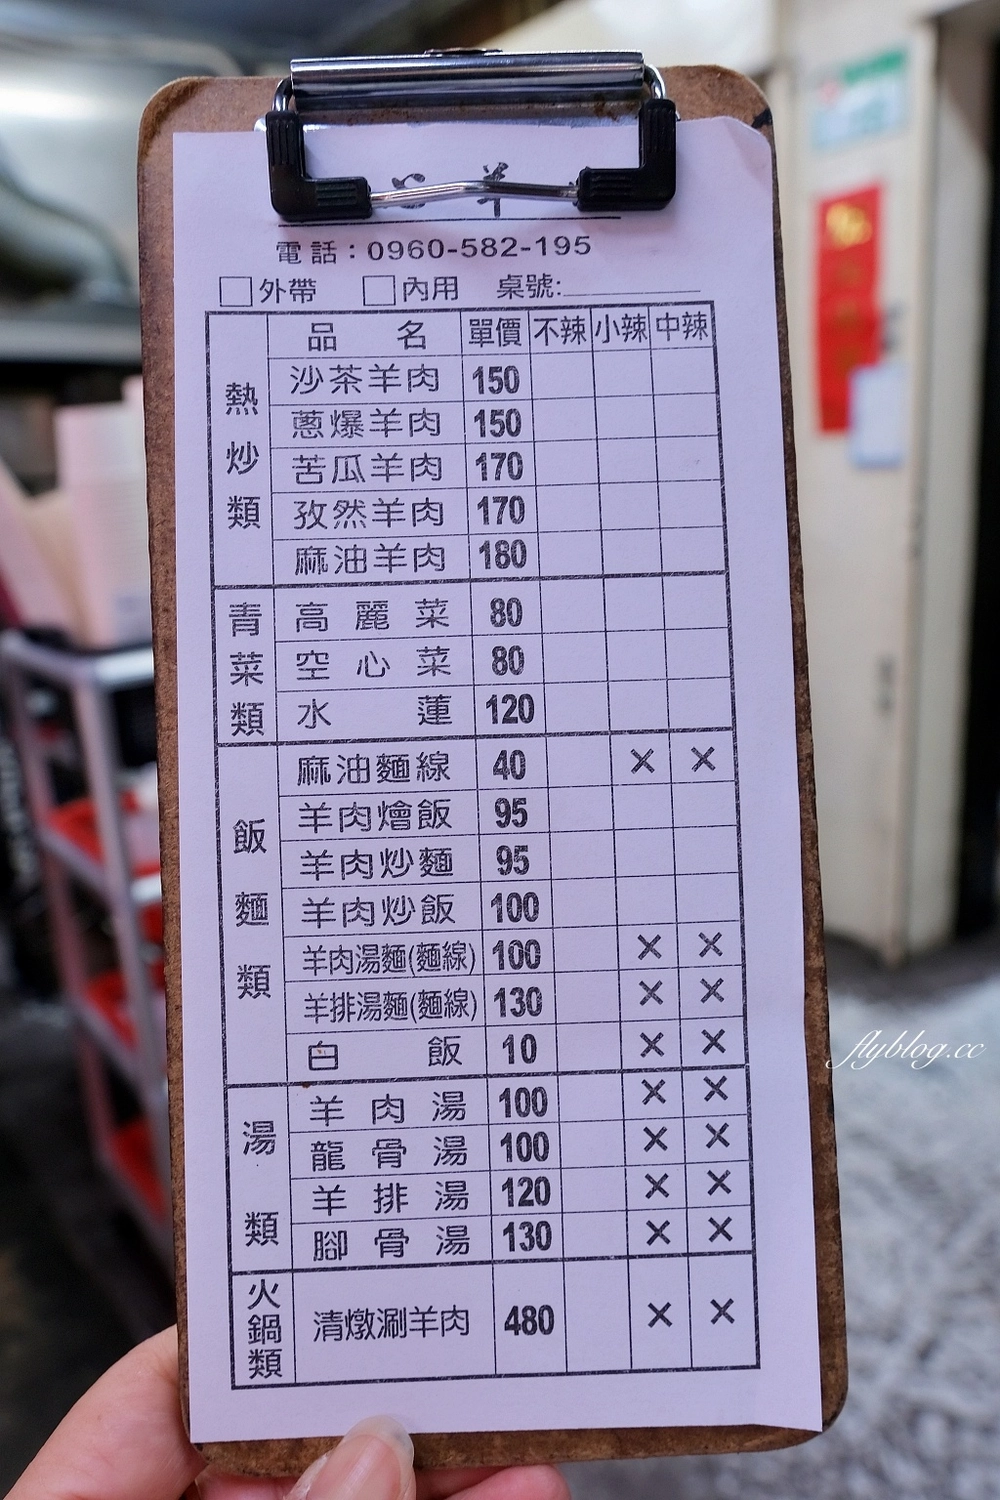 羊
電話：0960-582-195
□外帶 □內用 桌號:
熱炒類
品名 單價 不辣 小辣 中辣
沙茶羊肉 150
蔥爆羊肉 150
苦瓜羊肉 170
孜然羊肉 170
麻油羊肉 180
青菜類
高麗菜 80
空心菜 80
水蓮 120
飯麵類
麻油麵線 40 × ×
羊肉燴飯 95
羊肉炒麵 95
羊肉炒飯 100
羊肉湯麵(麵線) 100 × ×
羊排湯麵(麵線) 130 × ×
白飯 10 × ×
湯類
羊肉湯 100 × ×
龍骨湯 100 × ×
羊排湯 120 × ×
腳骨湯 130 × ×
火鍋類
清燉涮羊肉 480 × ×
flyblog.cc